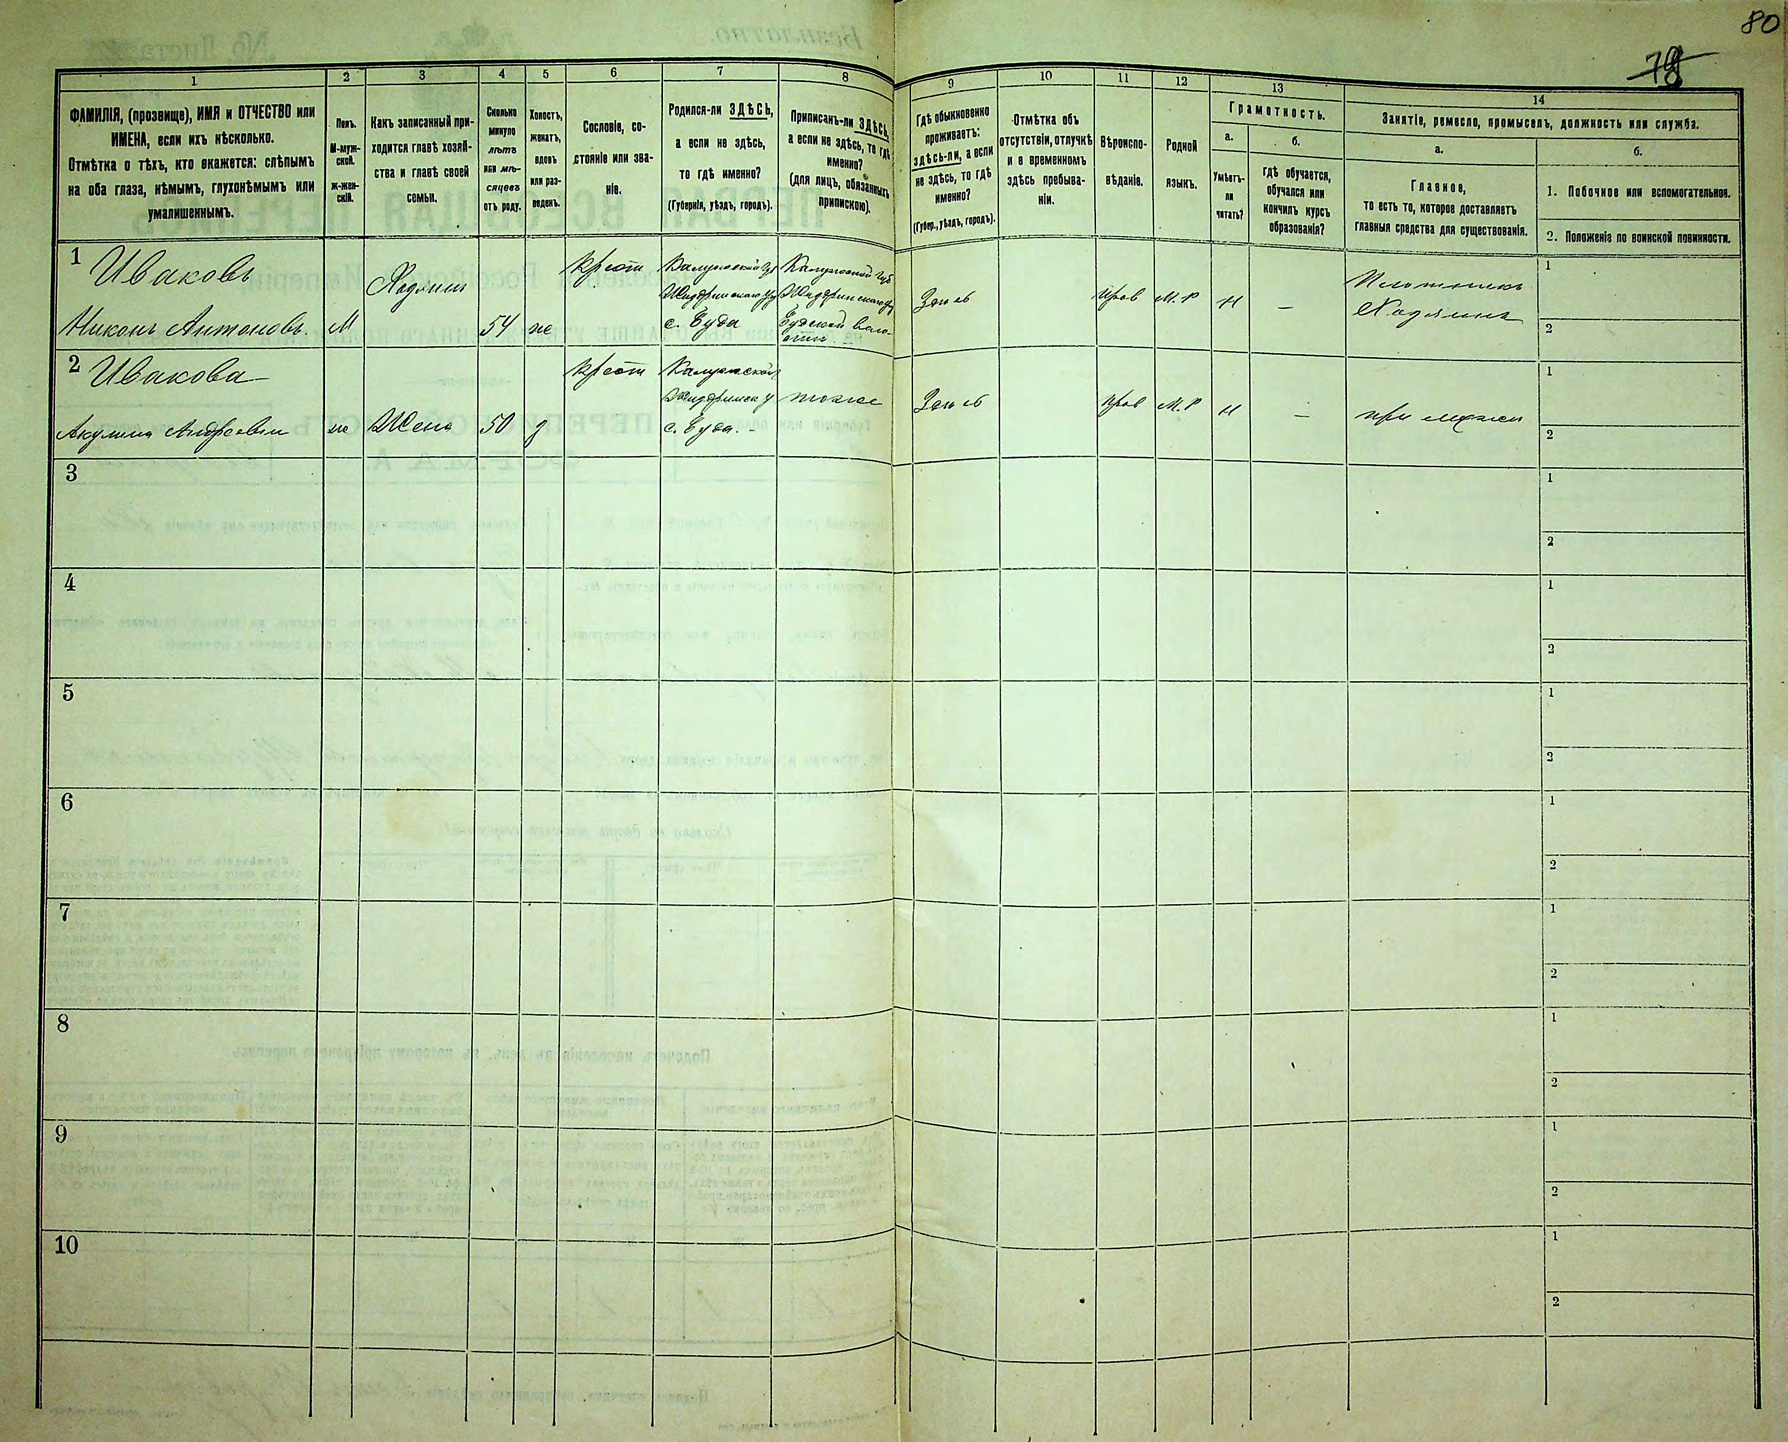 80
1
ФАМИЛІЯ, (прозвище), ИМЯ и ОТЧЕСТВО или
ИМЕНА, если ихъ нѣсколько.
Отмѣтка о тѣхъ, кто окажется: слѣпымъ
на оба глаза, нѣмымъ, глухонѣмымъ или
умалишеннымъ.
2
Полъ.
М-муж-
ской.
Ж-жен-
скій.
3
Какъ записанный при-
ходится главѣ хозяй-
ства и главѣ своей
семьи.
4
Сколько
минуло
лѣтъ
или мѣ-
сяцевъ
отъ роду.
5
Холостъ,
женатъ,
вдовъ
или раз-
веденъ.
6
Сословіе, со-
стояніе или зва-
ніе.
7
Родился-ли ЗДѢСЬ,
а если не здѣсь,
то гдѣ именно?
(Губернія, уѣздъ, городъ).
8
Приписанъ-ли ЗДѢСЬ,
а если не здѣсь, то гдѣ
именно?
(для лицъ, обязанныхъ
припискою).
9
Гдѣ обыкновенно
проживаетъ:
здѣсь-ли, а если
не здѣсь, то гдѣ
именно?
(Губер., уѣздъ, городъ).
10
Отмѣтка объ
отсутствіи, отлучкѣ
и о временномъ
здѣсь пребыва-
ніи.
11
Вѣроиспо-
вѣданіе.
12
Родной
языкъ.
13
Грамотность.
а.
Умѣетъ-
ли
читать?
б.
гдѣ обучается,
обучался или
кончилъ курсъ
образованія?
14
Занятіе, ремесло, промыселъ, должность или служба.
а.
Главное,
то есть то, которое доставляетъ
главныя средства для существованія.
б.
1. Побочное или вспомогательное.
2. Положеніе по воинской повинности.
1
Иваковъ
Никонъ Антоновъ.
М
Хозяинъ
54
ж
крест
Калужской Гу
Жиздринского Уу
с. Буда
Калужской Губ
Жиздринского У
Будской воло-
сти
Здѣсь
Прав
М. Р
Н
—
Плотникъ
Хозяинъ
1
2
2
Ивакова
Акулина Андреевна
ж
Жена
50
з
крест
Калужской
Жиздринск у
с. Буда. -
тоже
Здѣсь
Прав
М. Р
Н
—
при мужи
1
2
3
1
2
4
1
2
5
1
2
6
1
2
7
1
2
8
1
2
9
1
2
10
1
2